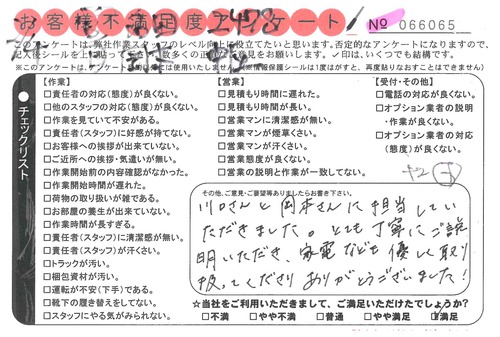 お客様不満足度アンケート
2478
No 066065
このアンケートは、弊社作業スタッフのレベル向上に役立てたいと思います。否定的なアンケートになりますので、
記入後シールを上
数多くの正
意見をお願いします。✓印は、いくつでも結構です。
チェックリスト
【作業】
□責任者の対応(態度)が良くない。
□他のスタッフの対応(態度)が良くない。
□作業を見ていて不安がある。
□責任者(スタッフ)に好感が持てない。
□お客様への挨拶が出来ていない。
□ご近所への挨拶・気遣いが無い。
□作業開始前の内容確認がなかった。
□作業開始時間が遅れた。
□荷物の取り扱いが雑である。
□お部屋の養生が出来ていない。
□作業時間が長すぎる。
□責任者(スタッフ)に清潔感が無い。
□責任者(スタッフ)が汗くさい。
□トラックが汚い。
□梱包資材が汚い。
□運転が不安(下手)である。
□靴下の履き替えをしてない。
□スタッフにやる気がみられない。
【営業】
□見積もり時間に遅れた。
□見積もり時間が長い。
□営業マンに清潔感が無い。
□営業マンが煙草くさい。
□営業マンが汗くさい。
□営業態度が良くない。
□営業の説明と作業が一致してない。
【受付・その他】
□電話の対応が良くない。
□オプション業者の説明・作業が良くない。
□オプション業者の対応(態度)が良くない。
その他、ご意見・ご要望等ありましたらお書き下さい。
川口さんと岡本さんに担当してい
ただきました。とても丁寧にご説
明いただき、家電なども優しく取り
扱ってくださりありがとうございました!
☆当社をご利用いただきまして、ご満足いただけたでしょうか?
□不満 □やや不満 □普通 □やや満足 ☑満足